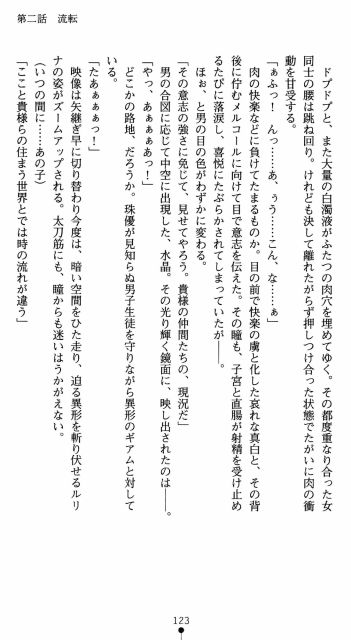 第二話　流転
ドプドプと、また大量の白濁液がふたつの肉穴を埋めてゆく。その都度重なり合った女
同士の腰は跳ね回り。けれども決して離れたがらず押しつけ合った状態でたがいに肉の衝
動を甘受する。
「ぁふっ！　んっ……あ、ぅう……こん、な……ぁ」
肉の快楽などに負けてたまるものか。目の前で快楽の虜と化した哀れな真白と、その背
後に佇むメルコールに向けて目で意志を伝えた。その瞳も、子宮と直腸が射精を受け止め
るたびに落涙し、喜悦にたぶらかされてしまっていたが――。
ほぉ、と男の目の色がわずかに変わる。
「その意志の強さに免じて、見せてやろう。貴様の仲間たちの、現況だ」
男の合図に応じて中空に出現した、水晶。その光り輝く鏡面に、映し出されたのは――。
「やっ、あぁぁぁぁっ！」
どこかの路地、だろうか。珠優が見知らぬ男子生徒を守りながら異形のギアムと対して
いる。
「たあぁぁぁっ！」
映像は矢継ぎ早に切り替わり今度は、暗い空間をひた走り、迫る異形を斬り伏せるルリ
ナの姿がズームアップされる。太刀筋にも、瞳からも迷いはうかがえない。
（いつの間に……あの子）
「ここと貴様らの住まう世界とでは時の流れが違う」
123